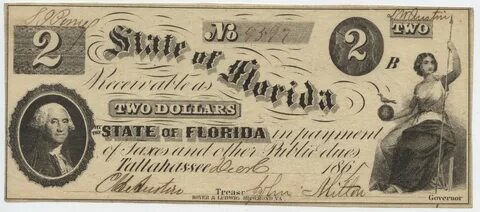 No
2 TWO
State of Florida
2
B
Receivable as
TWO DOLLARS
THE STATE OF FLORIDA in payment
of Taxes and other Public dues
Tallahassee 1861
Treasr John Milton
HOYER & LUDWIG, RICHMOND VA
Governor